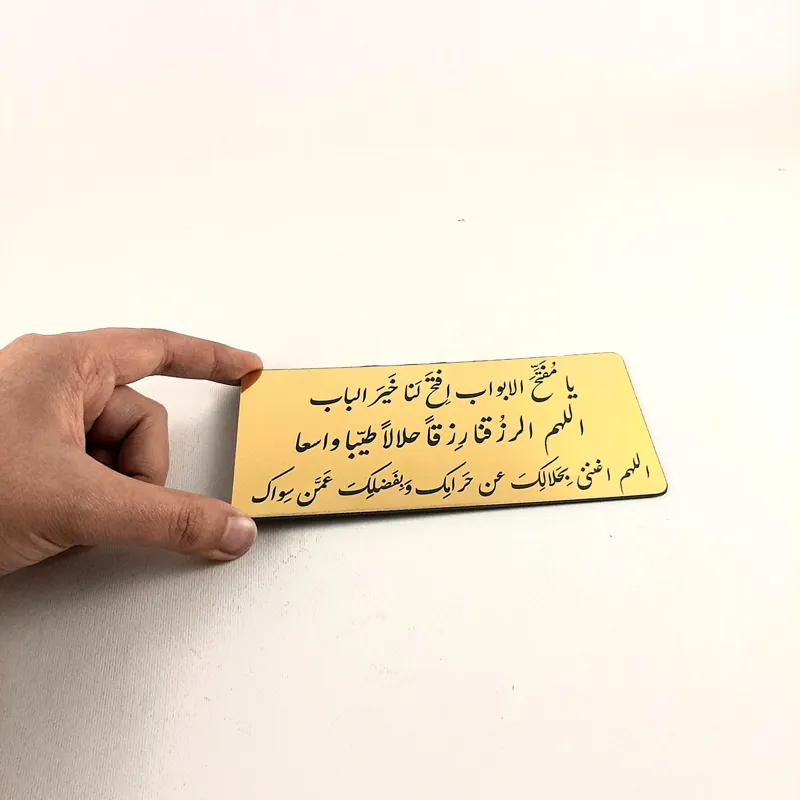 یا مُفَتِّحَ الابواب اِفتَح لَنا خَیرَ الباب
اللهم الرزُقنا رِزقاً حلالاً طیّبا واسعا
اللهم اغننی بِحَلالِکَ عن حَرامِک وَبِفَضلِکَ عَمَّن سِواک